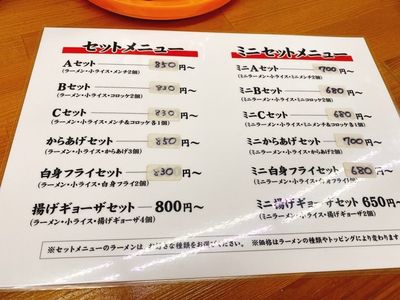 セットメニュー
Aセット 850円〜
(ラーメン・小ライス・メンチ2個)
Bセット 830円〜
(ラーメン・小ライス・コロッケ2個)
Cセット 830円〜
(ラーメン・小ライス・メンチ&コロッケ各1個)
からあげセット 850円〜
(ラーメン・小ライス・からあげ3個)
白身フライセット 830円〜
(ラーメン・小ライス・白身フライ2個)
揚げギョーザセット 800円〜
(ラーメン・小ライス・揚げギョーザ4個)
ミニセットメニュー
ミニAセット 700円〜
(ミニラーメン・小ライス・ミニメンチ2個)
ミニBセット 680円〜
(ミニラーメン・小ライス・ミニコロッケ2個)
ミニCセット 680円〜
(ミニラーメン・小ライス・ミニメンチ&コロッケ各1個)
ミニからあげセット 700円〜
(ミニラーメン・小ライス・からあげ2個)
ミニ白身フライセット 680円〜
(ミニラーメン・小ライス・白身フライ1個)
ミニ揚げギョーザセット 650円〜
(ミニラーメン・小ライス・揚げギョーザ2個)
※セットメニューのラーメンは、お好きな種類をお選びください。 ※価格はラーメンの種類やトッピングにより変わります